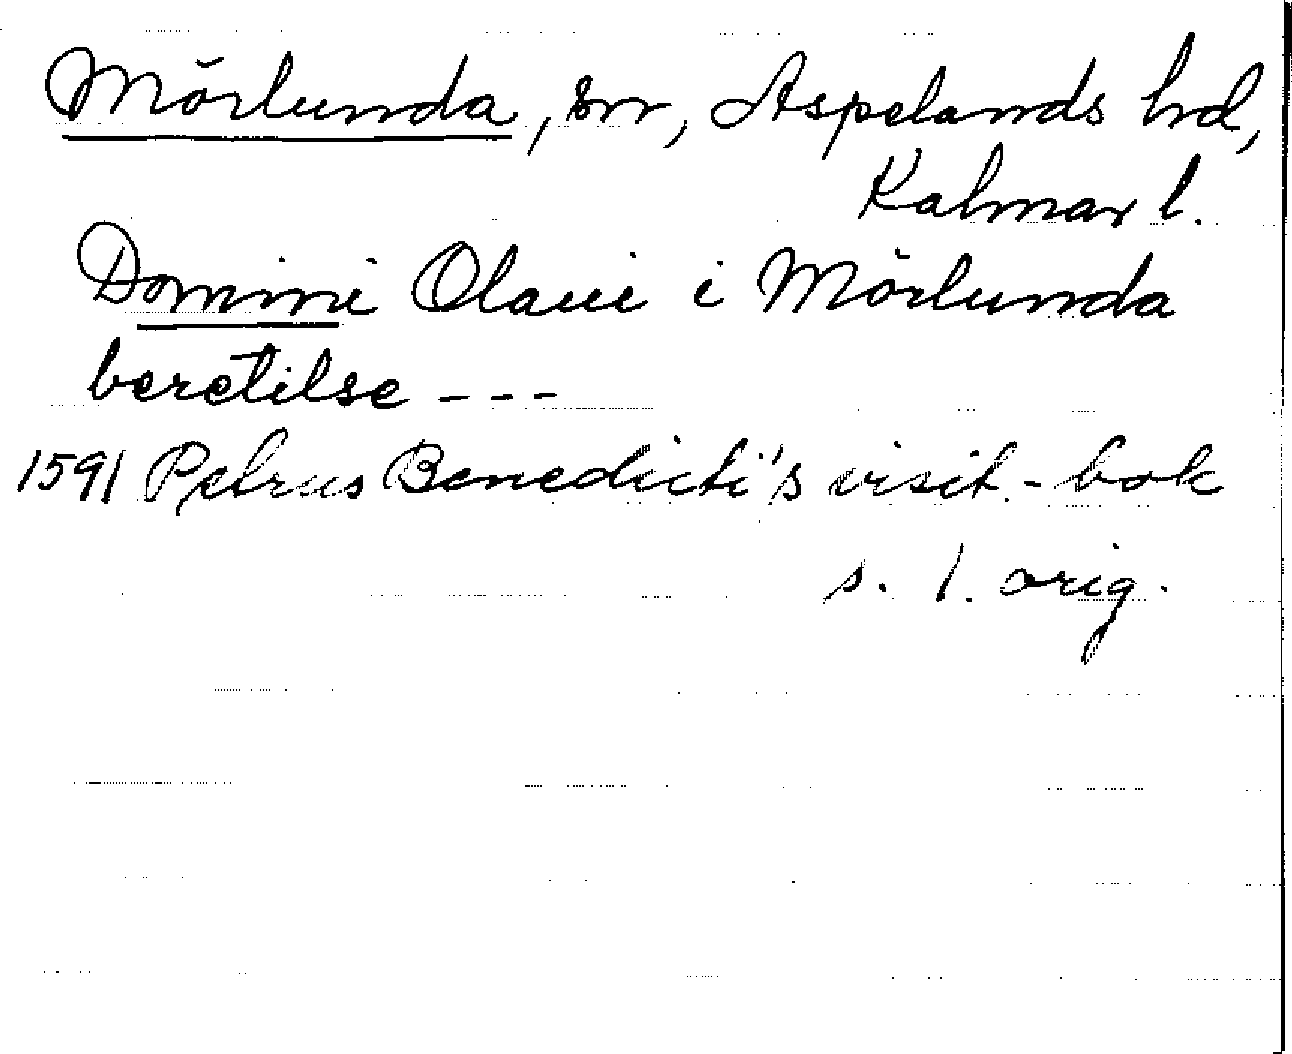 Mörlunda, sn, Aspelands hd,
Kalmar l.
Domini Olaui i Mörlunda
beretilse ---
1591 Petrus Benedicti's visit.-bok
s. 1. orig.